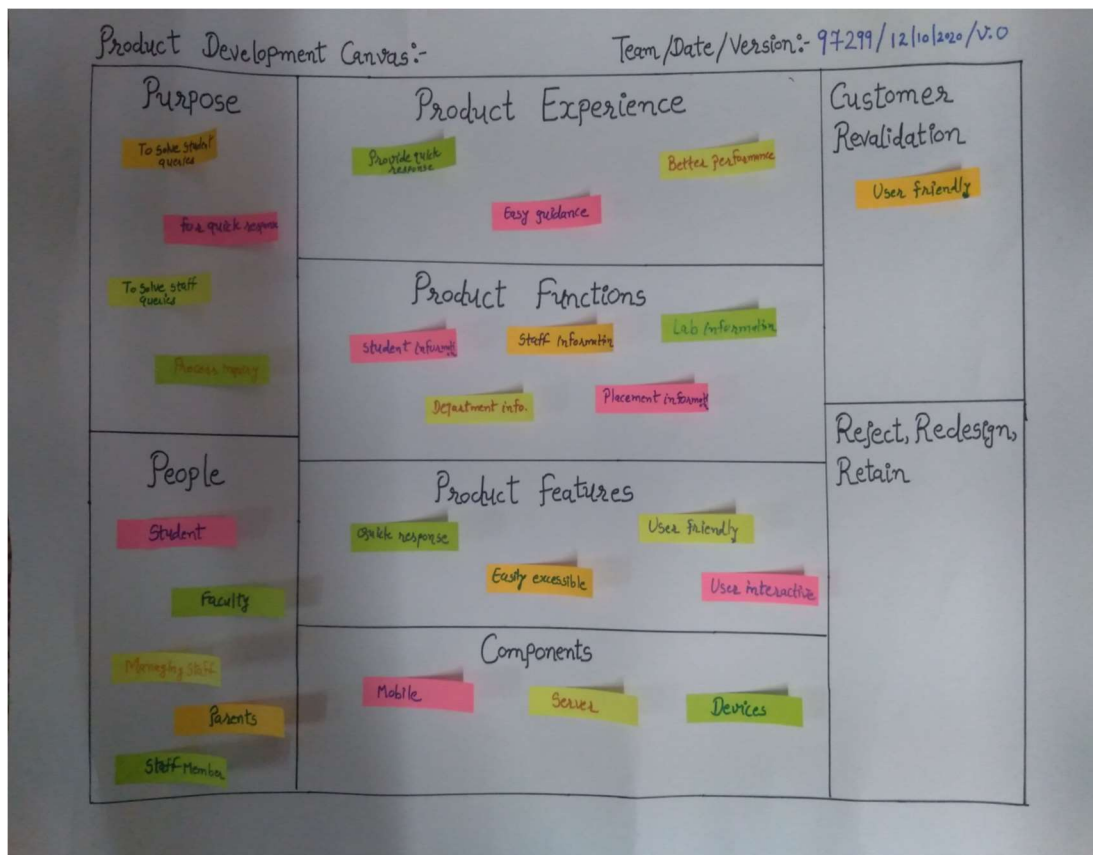 Product Development Canvas:-
Team/Date/Version:- 97299/12/10/2020/V.0
Purpose
To solve student
queries
For quick response
To solve staff
queries
Process inquiry
People
Student
Faculty
Managing staff
Parents
Staff Member
Product Experience
Provide quick
response
Better performance
Easy guidance
Product Functions
Student informati
Staff information
Lab information
Department info.
Placement informati
Product Features
Quick response
User friendly
Easily excessible
User interactive
Components
Mobile
Server
Devices
Customer
Revalidation
User friendly
Reject, Redesign,
Retain